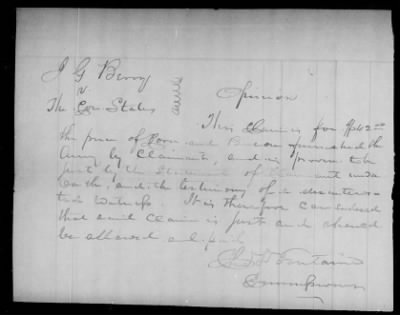 J G Berry
v
The Con States
Opinion
This claim is for $642
the price of Corn and Bacon furnished the
Army by Claimant, and is proven to be
just by the statement of Claimant under
oath, and the testimony of a disinteres-
ted witness. It is therefore considered
that said claim is just and should
be allowed and paid
Fontaine
Commissioner